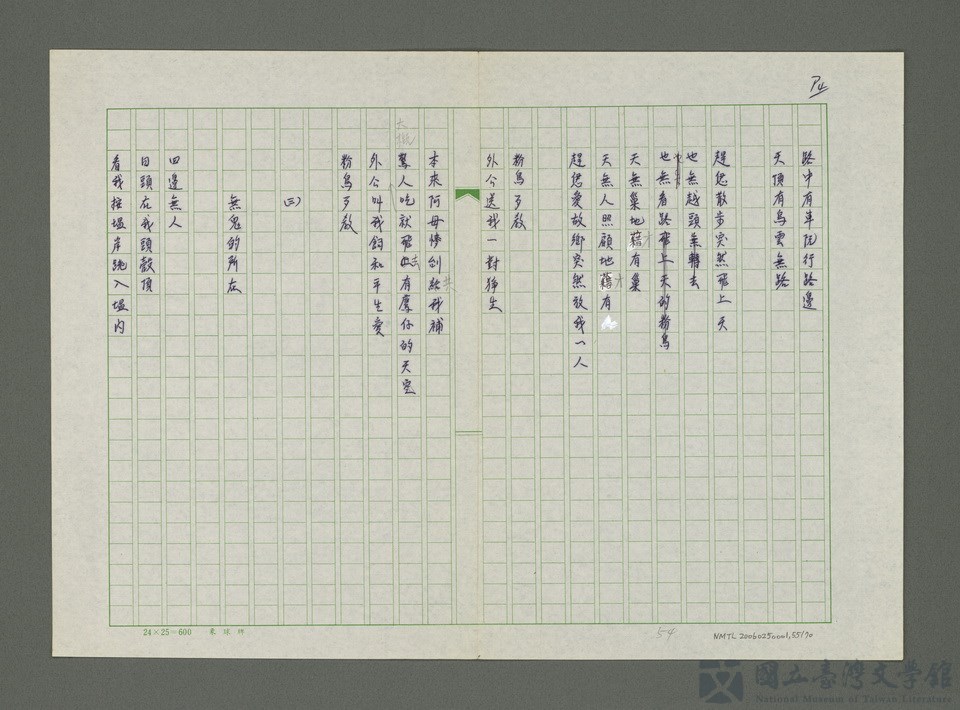 P4
路中有車阮行路邊
天頂有烏雲無路
趕您散步突然飛上天
也無越頭無轉去
也無看路飛上天的粉鳥
天無巢地藉有巢
天無人照顧地藉有
趕您愛故鄉突然放我一人
粉鳥
外公送我一對
本來阿母
驚人吃就飛去有鷹仔的天空
外公叫我飼和平生愛
粉鳥
(三)
無鬼的所在
四邊無人
日頭在我頭殼頂
看我
24×25=600
54
NMTL 20060250001,55/70
國立臺灣文學館
National Museum of Taiwan Literature